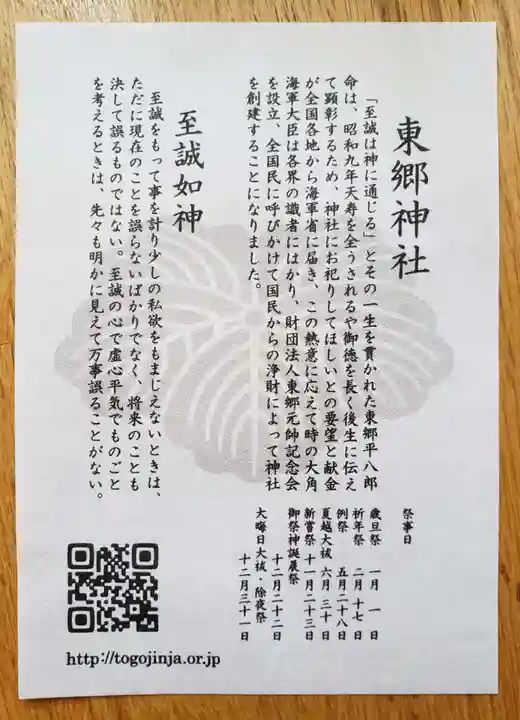 東郷神社
「至誠は神に通じる」とその一生を貫かれた東郷平八郎
命は、昭和九年天寿を全うされるや御徳を長く後生に伝え
て顕彰するため、神社にお祀りしてほしいとの要望と献金
が全国各地から海軍省に届き、この熱意に応えて時の大角
海軍大臣は各界の識者にはかり、財団法人東郷元帥記念会
を設立、全国民に呼びかけて国民からの浄財によって神社
を創建することになりました。
至誠如神
至誠をもって事を計り少しの私欲をもまじえないときは、
ただに現在のことを誤らないばかりでなく、将来のことも
決して誤るものではない。至誠の心で虚心平気でものごと
を考えるときは、先々も明かに見えて万事誤ることがない。
祭事日
歳旦祭 一月 一日
祈年祭 二月 十七日
例祭 五月二十八日
夏越大祓 六月 三十日
新嘗祭 十一月二十三日
御祭神誕辰祭
十二月二十二日
大晦日大祓・除夜祭
十二月三十一日
http://togojinja.or.jp